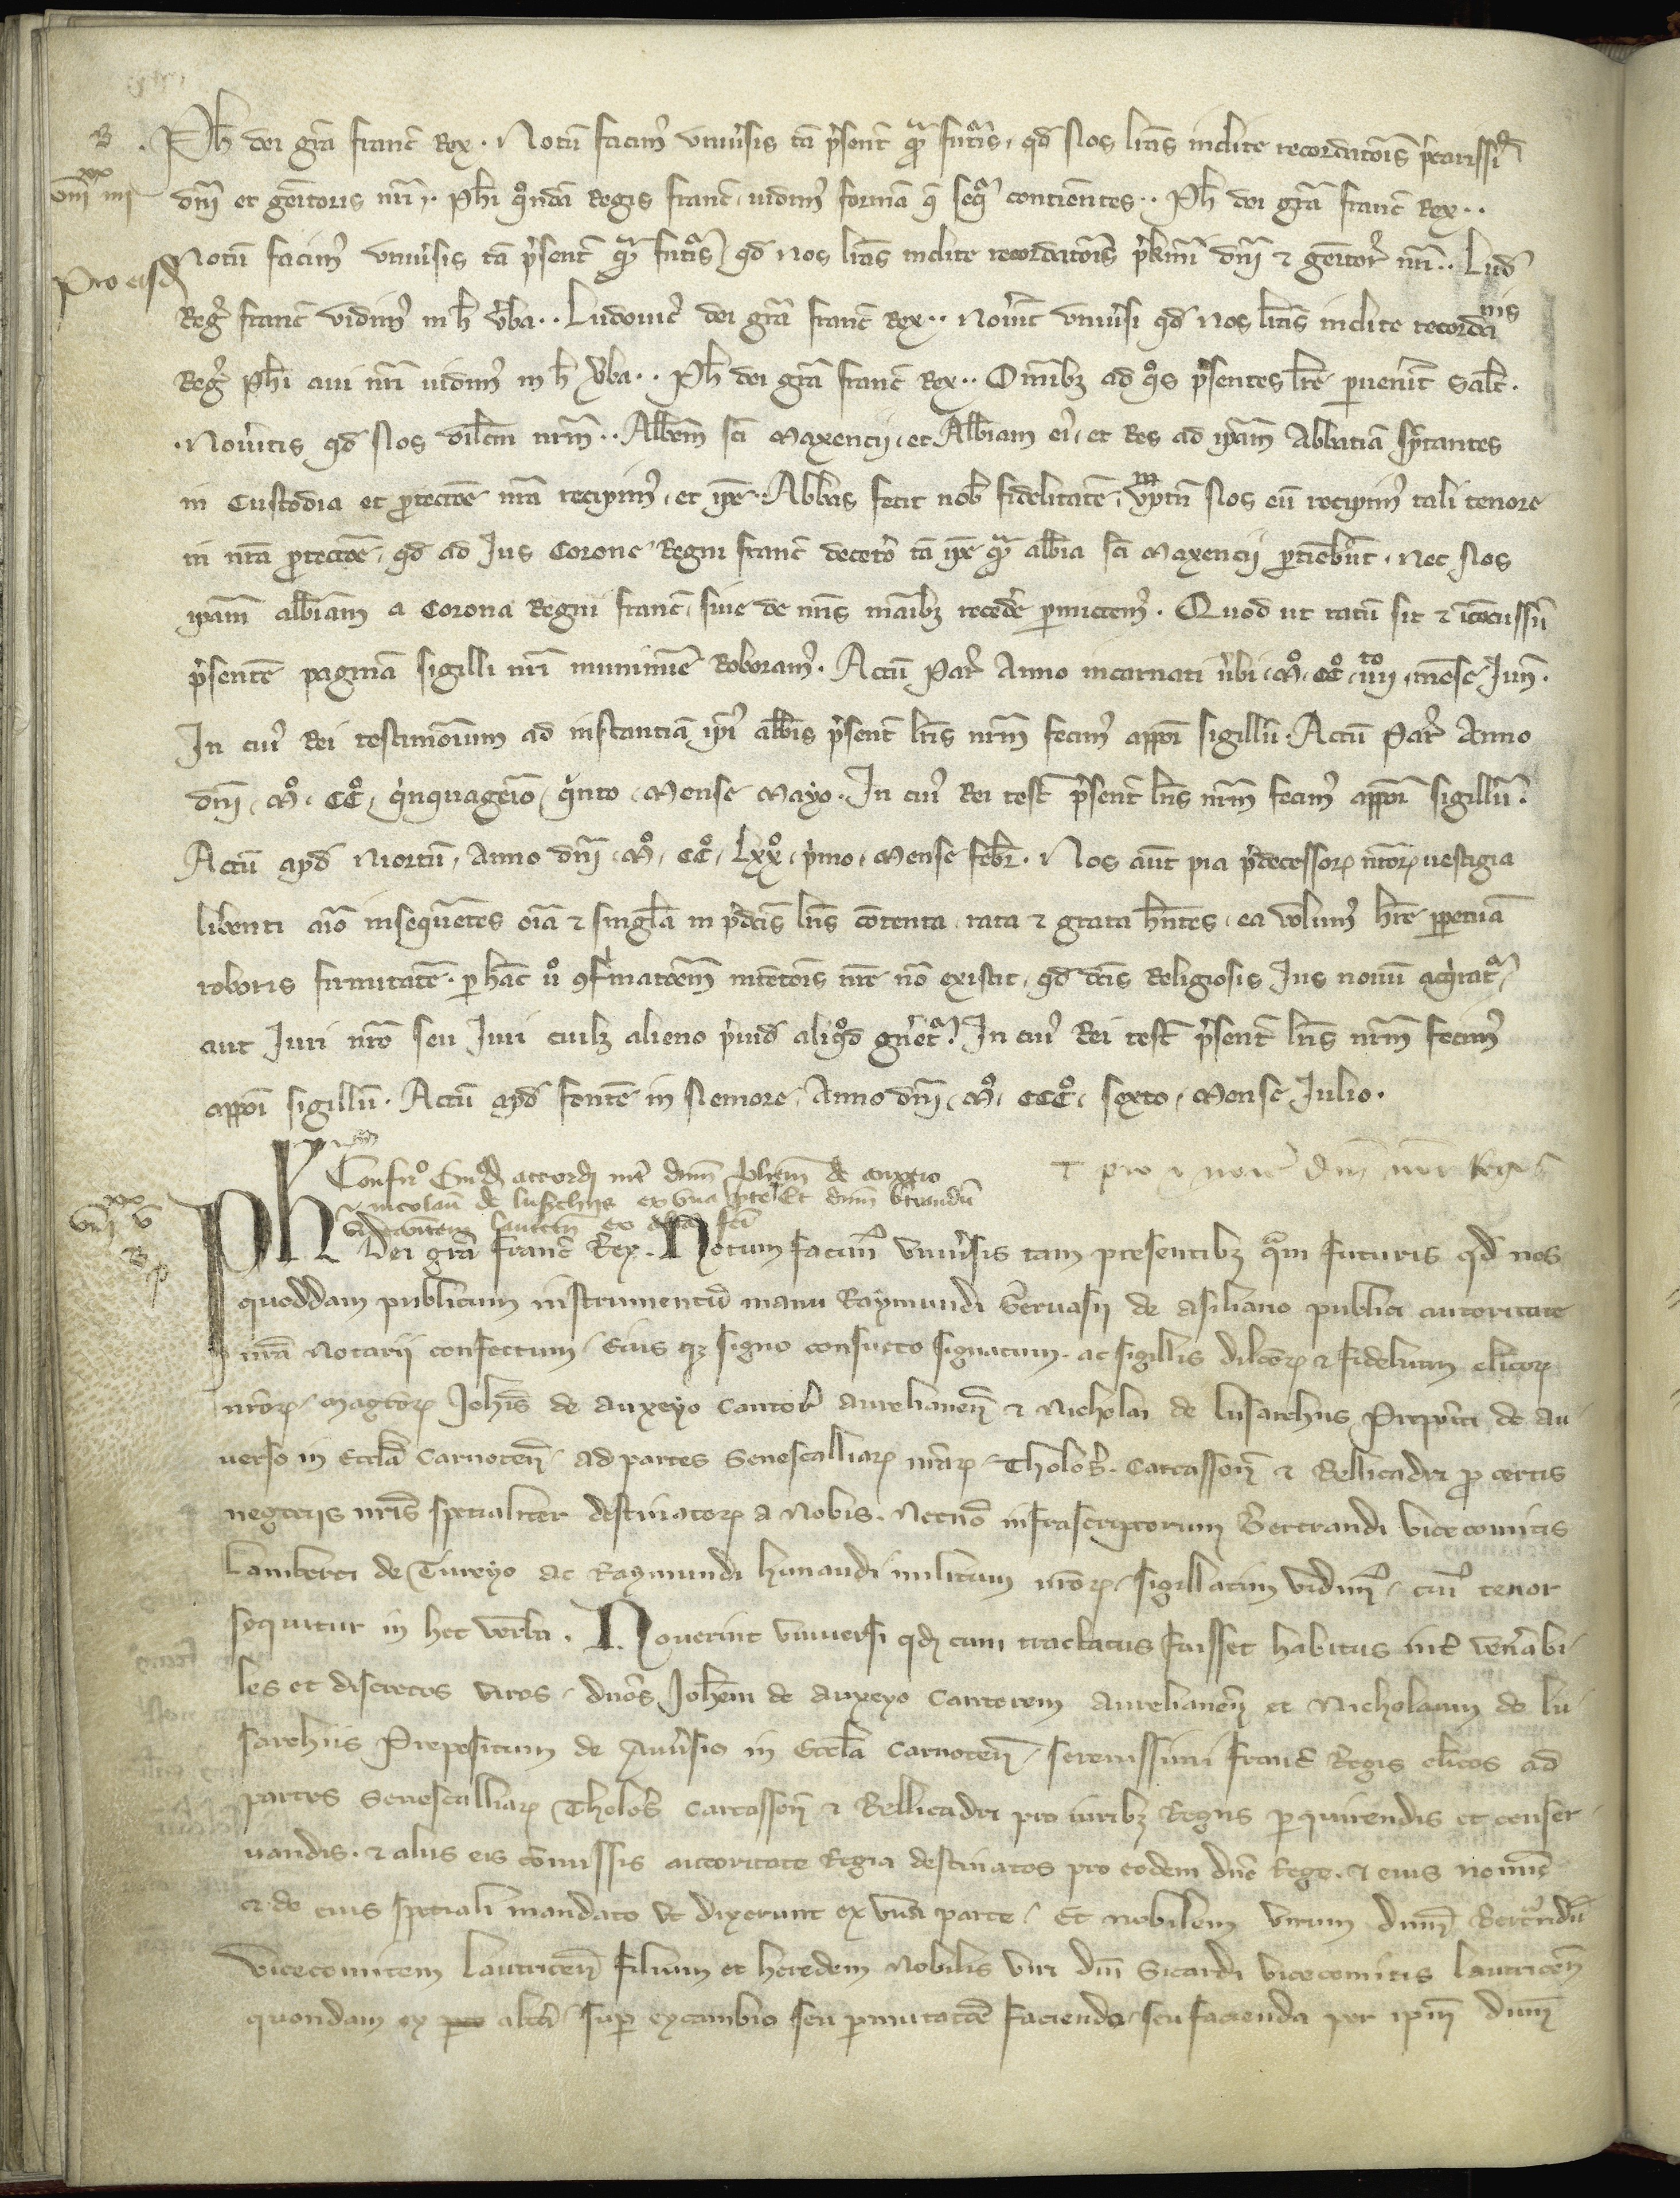 B
Ph dei gra franc Rex. Notu facim9 vniusis ta psent qua futis, qd Nos litas inclite recordatois pcarissi
dni et geitoris nri.. Phi qnda Regis franc, vidim9 forma q seqr contientes.. Ph dei gra franc Rex..
Pro eisd
Notu facim9 vniusis ta psent qua futis, qd nos litas inclite recordatois pkimi dni & geitor nri.. Lud
Reg franc vidim9 in h uba.. Ludouic9 dei gra franc Rex.. Nouit vniusi qd nos litas inclite recordanis
Reg Phi aui nri vidim9 in h uba.. Ph dei gra franc Rex.. Omibz ad qos psentes lre puenit Salt.
Nouitis qd Nos dilcm nrm.. Abbem sci Maxencij, et Abbiam ei9, et Res ad ipam Abbatia sptantes
in Custodia et ptectoe nra recipim9, et ipe.. Abbas fecit nob fidelitate, vptn Nos eu recipim9 tali tenore
in nra ptectoe, qd ad Jus Corone Regni franc deceto ta ipe qua abbia sci Maxencij ptiebut. nec Nos
ipam abbiam a Corona Regni franc, siue de nris maibz recede pmictem9. Quod ut ratu sit & icocussu
psente pagina sigilli nri munimie Roboram9. Actu Par Anno incarnati ubi, Mo, CCo, iiijto, mese Jun.
In cui9 Rei testimoium ad instantia ipi9 abbis psent lris nrm fecim9 appoi sigillu. Actu Par Anno
dni, Mo, CCo, qinquageio, qinto, Mense Mayo. In cui9 Rei test psent lris nrm fecim9 appoi sigillu.
Actu apd Niortu, Anno dni, Mo, CCo, Lxxo, pimo, Mense febr. Nos aut pia pdecessor nror uestigia
libenti aio insequetes oia & singla in pdcis lris cotenta, rata & grata hntes, ea volum9 hre ppetua
roboris firmitate. p hac uo 9firmatoem intetois nre no existit, qd dcis Religiosis Jus nouu acqirat
aut Juri nro seu Juri cuilz alieno piud aliqd gnet. In cui9 Rei test psent lris nrm fecim9
appoi sigillu. Actu apd fonte in Nemore, Anno dni, Mo, CCCo, sexto, Mense Julio.
Confir accord int dnm Johem de auxeio
& nicolau de lusarchiis ex vna pte Et dnm btrandu
vicecomitem lautricn ex alta fci
Ph Dei gra franc Rex. Notum facim9 vniusis tam presentibz qam futuris qd nos
quoddam publicum instrumentu manu Raymundi Geruasij de asiliano publici autoritate
nra Notarij confectum, eius qz signo consueto signatum. ac sigillis dilcor & fidelium clicor
nror, magror Johis de auxeyo Cantor aurelianen & Nicholai de lusarchiis Prepositi de au
uerso in Eccla Carnoten, ad partes Senescalliar nrar, Tholos. Carcasson & Bellicadri p certis
negocijs nris specialiter destinator a Nobis. Necno infrascriptorum Bertrandi vicecomitis
Lamberti de Tureyo ac Raymundi hunaudi militum nror, sigillatim vidim9, cui9 tenor
sequitur in hec verba. Nouerint vniuersi qd cum tractatus fuisset habitus int venerabi
les et discretos viros, dnos Johem de auxeyo Cantorem aurelianen et Nicholaum de lu
sarchiis Prepositum de Auuso in Eccla Carnoten, serenissimi franc Regis clicos ad
partes Senescalliar Tholos Carcasson & Bellicadri pro iuribz Regiis perquirendis et conser
uandis. & aliis eis comissis auctoritate Regia destinatos pro eodem dno Rege. & eius nomine
& de eius speciali mandato vt dixerunt ex vna parte, Et nobilem virum dnm Bertrandu
Vicecomitem lautricen filium et heredem Nobilis viri dni Sicardi vicecomitis lautricen
quondam ex alta, sup excambio seu pmutatoe faciendo, seu facienda per ipm dnm